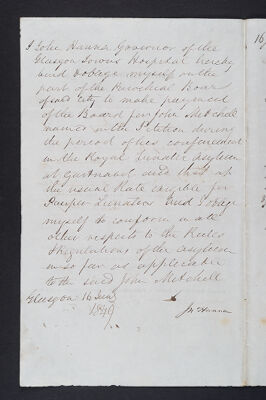 I John Hanna Governor of the
Glasgow Towns Hospital hereby
bind & oblige myself on the
part of the Parochial Board
of said city to make payment
of the Board for John Mitchell
named in the Petition during
the period of his confinement
in the Royal Lunatic Asylum
at Gartnavel and that at
the usual Rate eligible for
Pauper Lunatics and oblige
myself to conform in all
other respects to the Rules
& Regulations of the asylum
in so far as applicable
to the said John Mitchell
Glasgow 16
1849
Jn Hanna